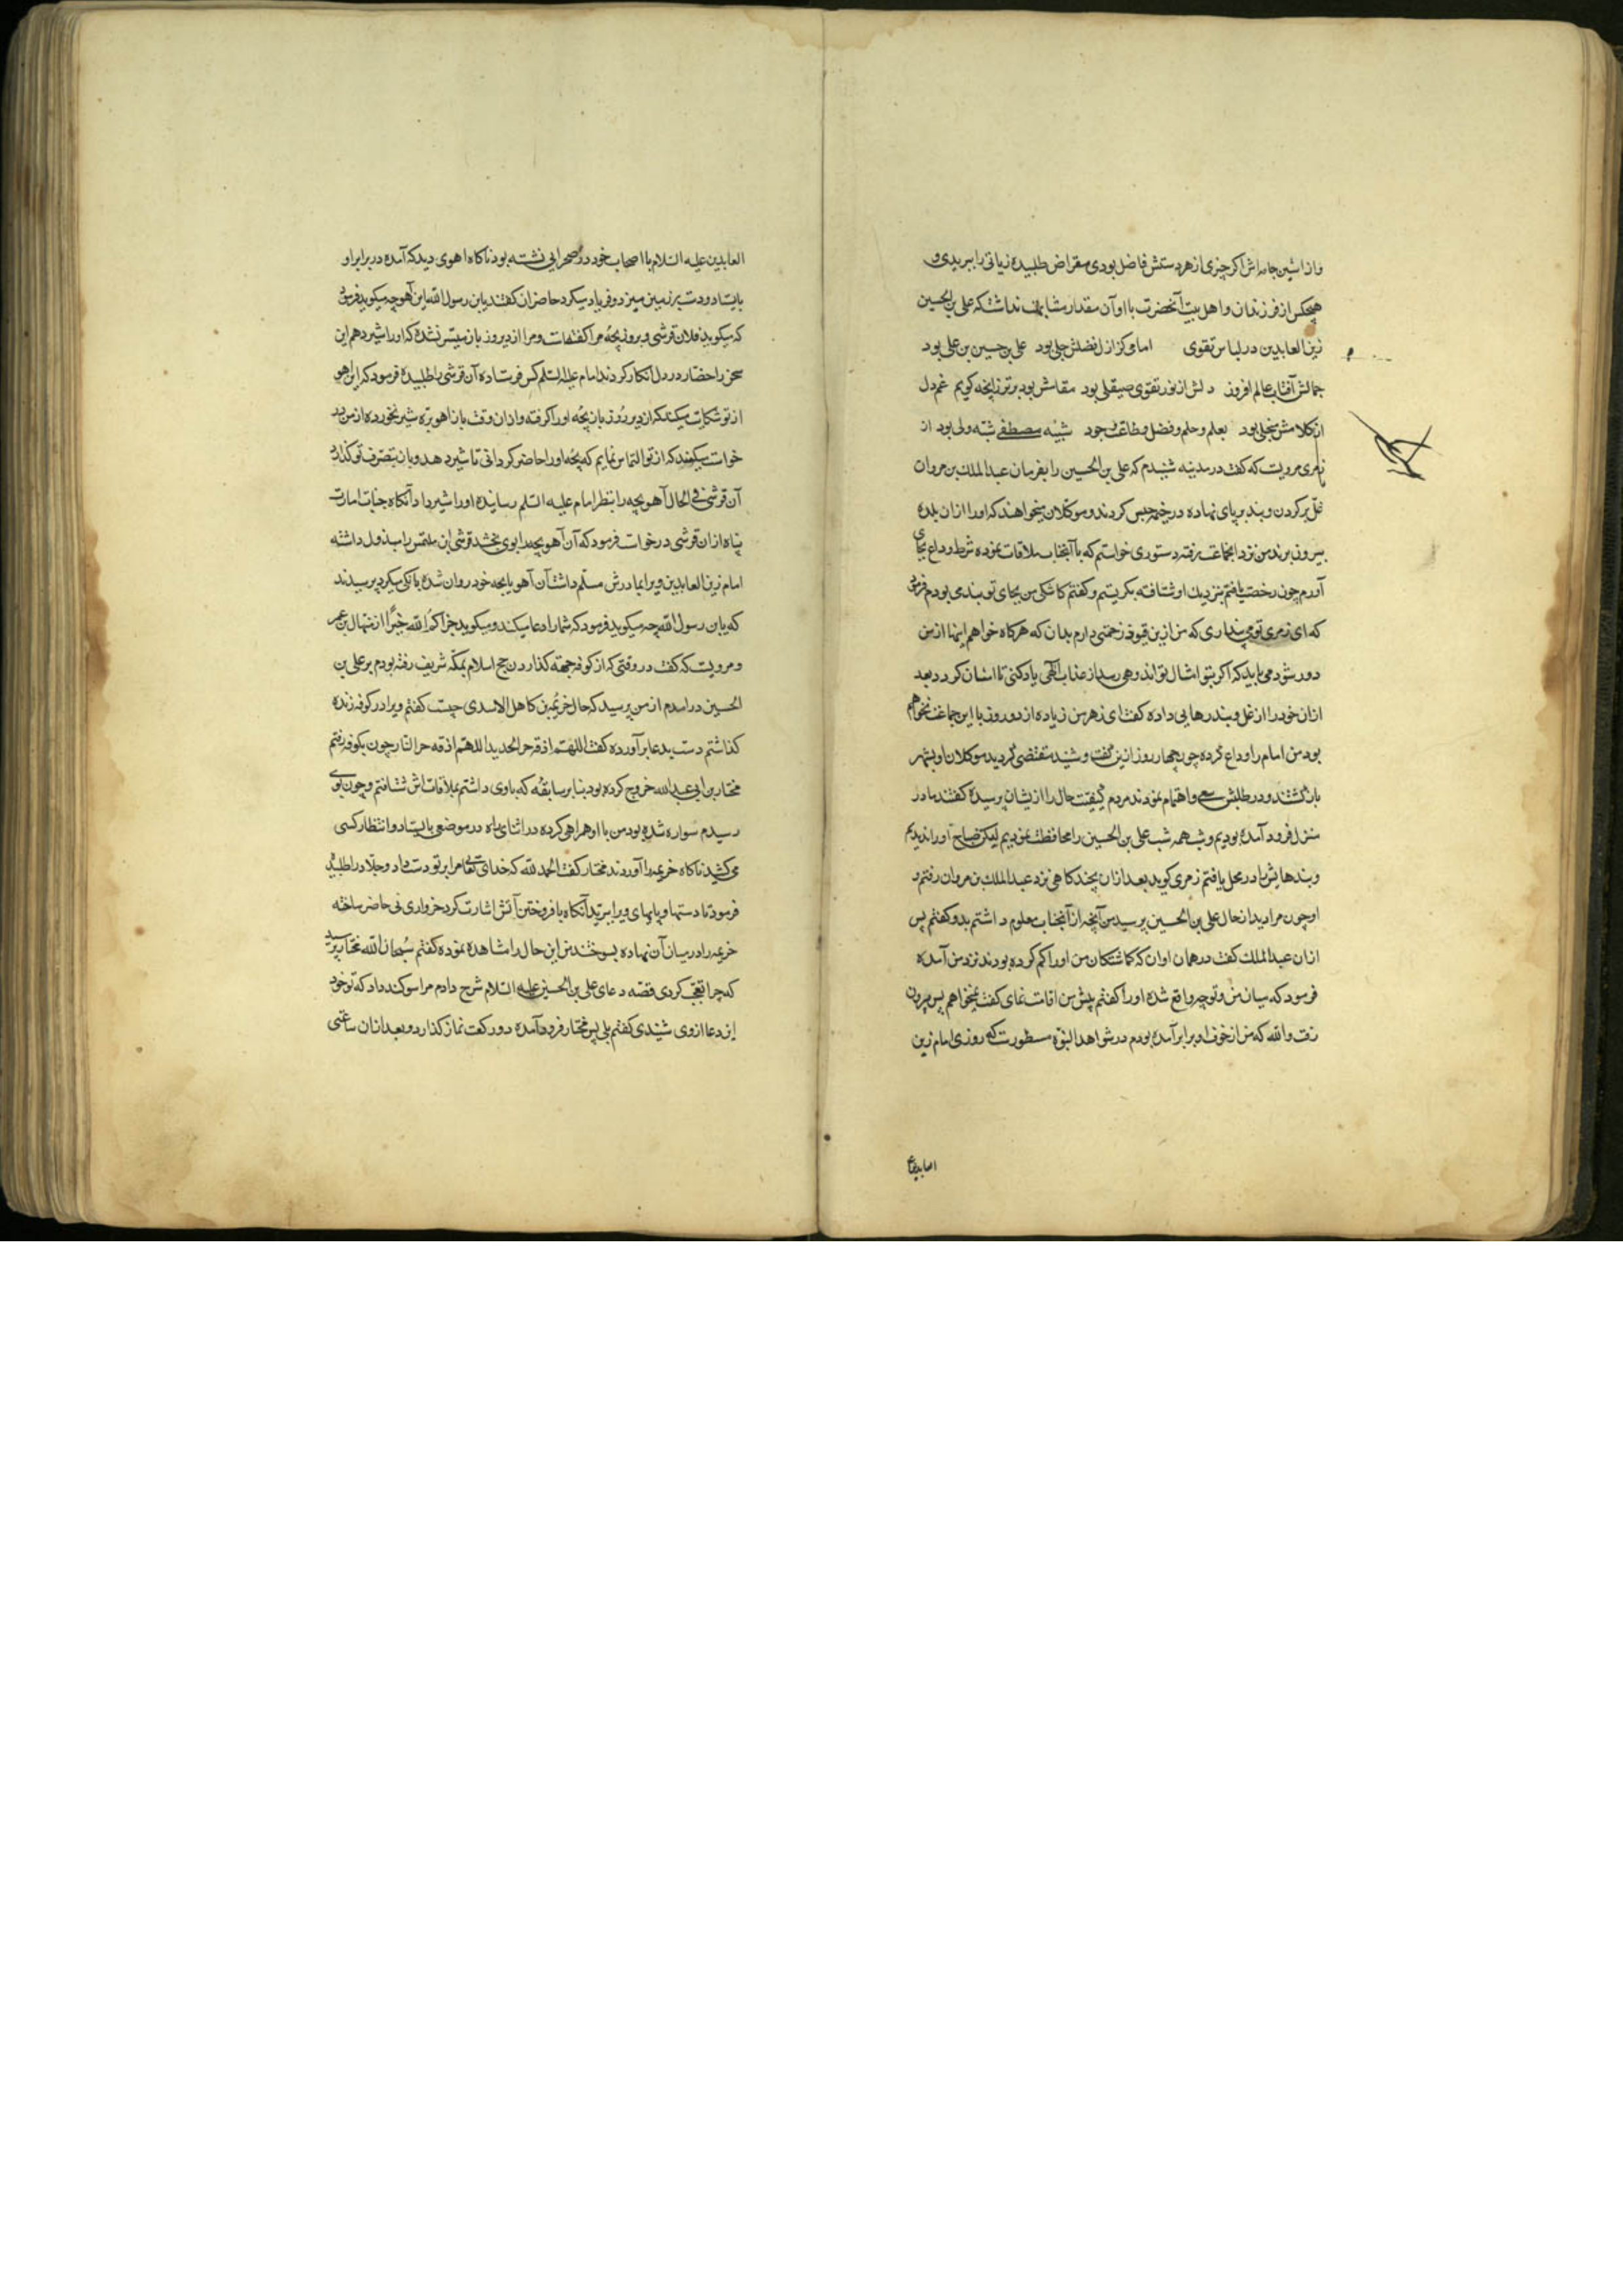 و از استین جامه‌اش اگر چیزی از هر دستش فاضل بودی مقراض طلبیده زیاتی را ببریدی و
هیچکس از فرزندان و اهل بیت آنحضرت با او آن مقدار مشابهت نداشت که علی بن الحسین
زین العابدین در لباس تقوی امامی کز ازل فضلش جلی بود علی بن حسین بن علی بود
جمالش آفتاب عالم افروز دلش از نور تقوی صیقلی بود مقامش بود برتر زانچه کویم غم دل
از کلامش منجلی بود بعلم و حلم و فضل و طاعت وجود شبیه مصطفی شبه ولی بود از
زهری مرویست که کفت در مدینه شنیدم که علی بن الحسین را بفرمان عبد الملک بن مروان
غل بر کردن و بند بر پای نهاده در خیمه حبس کردند و موکلان میخواهند که او را از ان بلده
بیرون برند من نزد انجماعت رفته دستوری خواستم که با آنجناب ملاقات نموده شرط وداع بجای
آورم چون رخصت یافتم نزدیک او شتافته بکریستم و کفتم کاشکی من بجای تو بندی بودم فرمود
که ای زهری تو می پنداری که من ازین قیود زحمتی دارم بدان که هرکاه خواهم اینها از من
دور شود می باید که اکر بتو امثال تو اندوهی رسد از عذاب الهی یاد کنی تا اسان کردد بعد
ازان خود را از غل و بند رهایی داده کفت ای زهر من زیاده از دو روز با این جماعت نخواهم
بود من امام را وداع کرده چون چهار روز ازین کفت و شنید منقضی کردید موکلان او بشهر
بازکشتند و در طلبش سعی و اهتمام نمودند مردم کیفیت حال را ازیشان پرسیده کفتند ما در
منزل فرود آمده بودیم و شب همه شب علی بن الحسین را محافظت نمودیم لیکن صباح او را ندیدیم
و بندهایش را در محل یافتم زهری کوید بعد ازان بچند کاهی نزد عبد الملک بن مروان رفتم و
او چون مرا دید از حال علی بن الحسین پرسید من آنچه از آنجناب معلوم داشتم بدو کفتم پس
ازان عبد الملک کفت در همان اوان که کماشتکان من او را کم کرده بودند نزد من آمده
فرمود که میان من و تو چه واقع شده او را کفتم پیش من اقامت نمای کفت نمیخواهم پس بیرون
رفت و الله که من از خوف او برابر آمده بودم در شواهد النبوة مسطورست که روزی امام زین
العابدین ع
العابدین علیه السلام با اصحاب خود در صحرایی نشسته بود ناکاه اهوی دید که آمده در برابر او
بایستاد و دست بر زمین میزد و فریاد میکرد حاضران کفتند یابن رسول الله این آهو چه میکوید فرمود
که میکوید فلان قرشی دیروز بچه مرا کفتست و مرا از دیروز باز میسر نشده که او را شیر دهم این
سخن را حضار در دل انکار کردند امام علیه السلم کس فرستاده آن قرشی را طلبیده فرمود که این اهو
از تو شکایت میکند که از دیروز باز بچه او را کرفته و ازان وقت باز اهو بره شیر نخورده از من در
خواست میکند که از تو التماس نمایم که بچه او را حاضر کردانی تا شیر دهد و باز بتصرف تو کذارد
آن قرشی فی الحال آهو بچه را بنظر امام علیه السلم رسانیده او را شیر داد آنکاه جناب امامت
پناه ازان قرشی درخواست فرمود که آن آهو بچه را بوی بخشد قرشی ان ملتمس را مبذول داشته
امام زین العابدین ویرا بمادرش مسلم داشت آن آهو با بچه خود روان شده بانکی میکرد پرسیدند
که یابن رسول الله چه میکوید فرمود که شما را دعا میکند و میکوید جزاکم الله خیرا از منهال بن عمر
و مرویست که کفت در وقتی که از کوفه جهته کذاردن حج اسلام بمکه شریف رفته بودم بر علی بن
الحسین درامدم از من پرسید که حال خزیمة بن کاهل الاسدی چیست کفتم ویرا در کوفه زنده
کذاشتم دست بدعا برآورده کفت اللهم اذقه حر الحدید اللهم اذقه حر النار چون بکوفه رفتم
مختار بن ابی عبدالله خروج کرده بود بنابر سابقه که با وی داشتم بملاقات اش شتافتم و چون بوی
رسیدم سواره شده بود من با او همراهی کرده در اثنای راه در موضعی بایستاد و انتظار کسی
می کشید ناکاه خزیمه را آوردند مختار کفت الحمد لله که خدای تعالی مرا بر تو دست داد و جلاد را طلبید
فرمود تا دستها و پایهای ویرا ببرید آنکاه بافروختن آتش اشارت کرد خرواری نی حاضر ساخته
خزیمه را در میان آن نهاده بسوختند من این حال را مشاهده نموده کفتم سبحان الله مختار پرسید
که چرا تعجب کردی قصه دعای علی بن الحسین علیه السلام شرح دادم مرا سوکند داد که تو خود
این دعا از وی شنیدی کفتم بلی پس مختار فرود آمده دو رکعت نماز کذارد و بعد ازان ساعتی